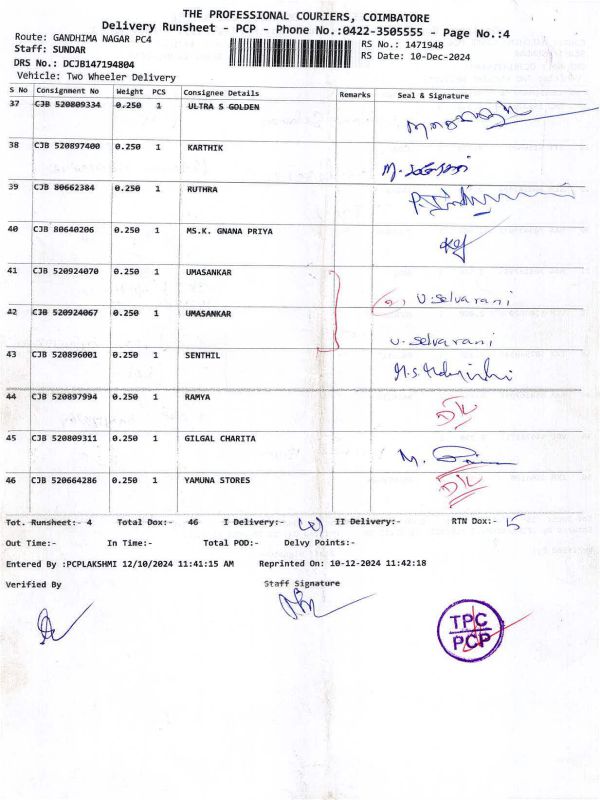 THE PROFESSIONAL COURIERS, COIMBATORE
Delivery Runsheet - PCP - Phone No.:0422-3505555 - Page No.:4
Route: GANDHIMA NAGAR PC4
RS No.: 1471948
Staff: SUNDAR
RS Date: 10-Dec-2024
DRS No.: DCJB147194804
Vehicle: Two Wheeler Delivery
S No Consignment No Weight PCS Consignee Details Remarks Seal & Signature
37 CJB 520809334 0.250 1 ULTRA S GOLDEN
38 CJB 520897400 0.250 1 KARTHIK
39 CJB 80662384 0.250 1 RUTHRA
40 CJB 80640206 0.250 1 MS.K. GNANA PRIYA
41 CJB 520924070 0.250 1 UMASANKAR
U. Selvarani
42 CJB 520924067 0.250 1 UMASANKAR
U. Selvarani
43 CJB 520896001 0.250 1 SENTHIL
44 CJB 520897994 0.250 1 RAMYA
DL
45 CJB 520809311 0.250 1 GILGAL CHARITA
46 CJB 520664286 0.250 1 YAMUNA STORES
DL
Tot. Runsheet:- 4 Total Dox:- 46 I Delivery:- II Delivery:- RTN Dox:- 5
Out Time:- In Time:- Total POD:- Delvy Points:-
Entered By :PCPLAKSHMI 12/10/2024 11:41:15 AM Reprinted On: 10-12-2024 11:42:18
Verified By Staff Signature
TPC
PCP